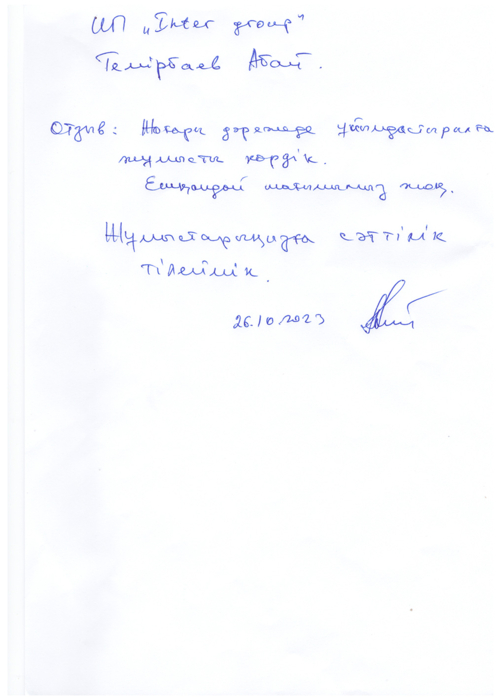 ИП „Inter group"
Темірбаев Абай.
Отзыв: Жоғары дәрежеде ұйымдастырылған
жұмысты көрдік.
Ешқандай шағымымыз жоқ.
Жұмыстарыңызға сәттілік
тілейміз.
26.10.2023